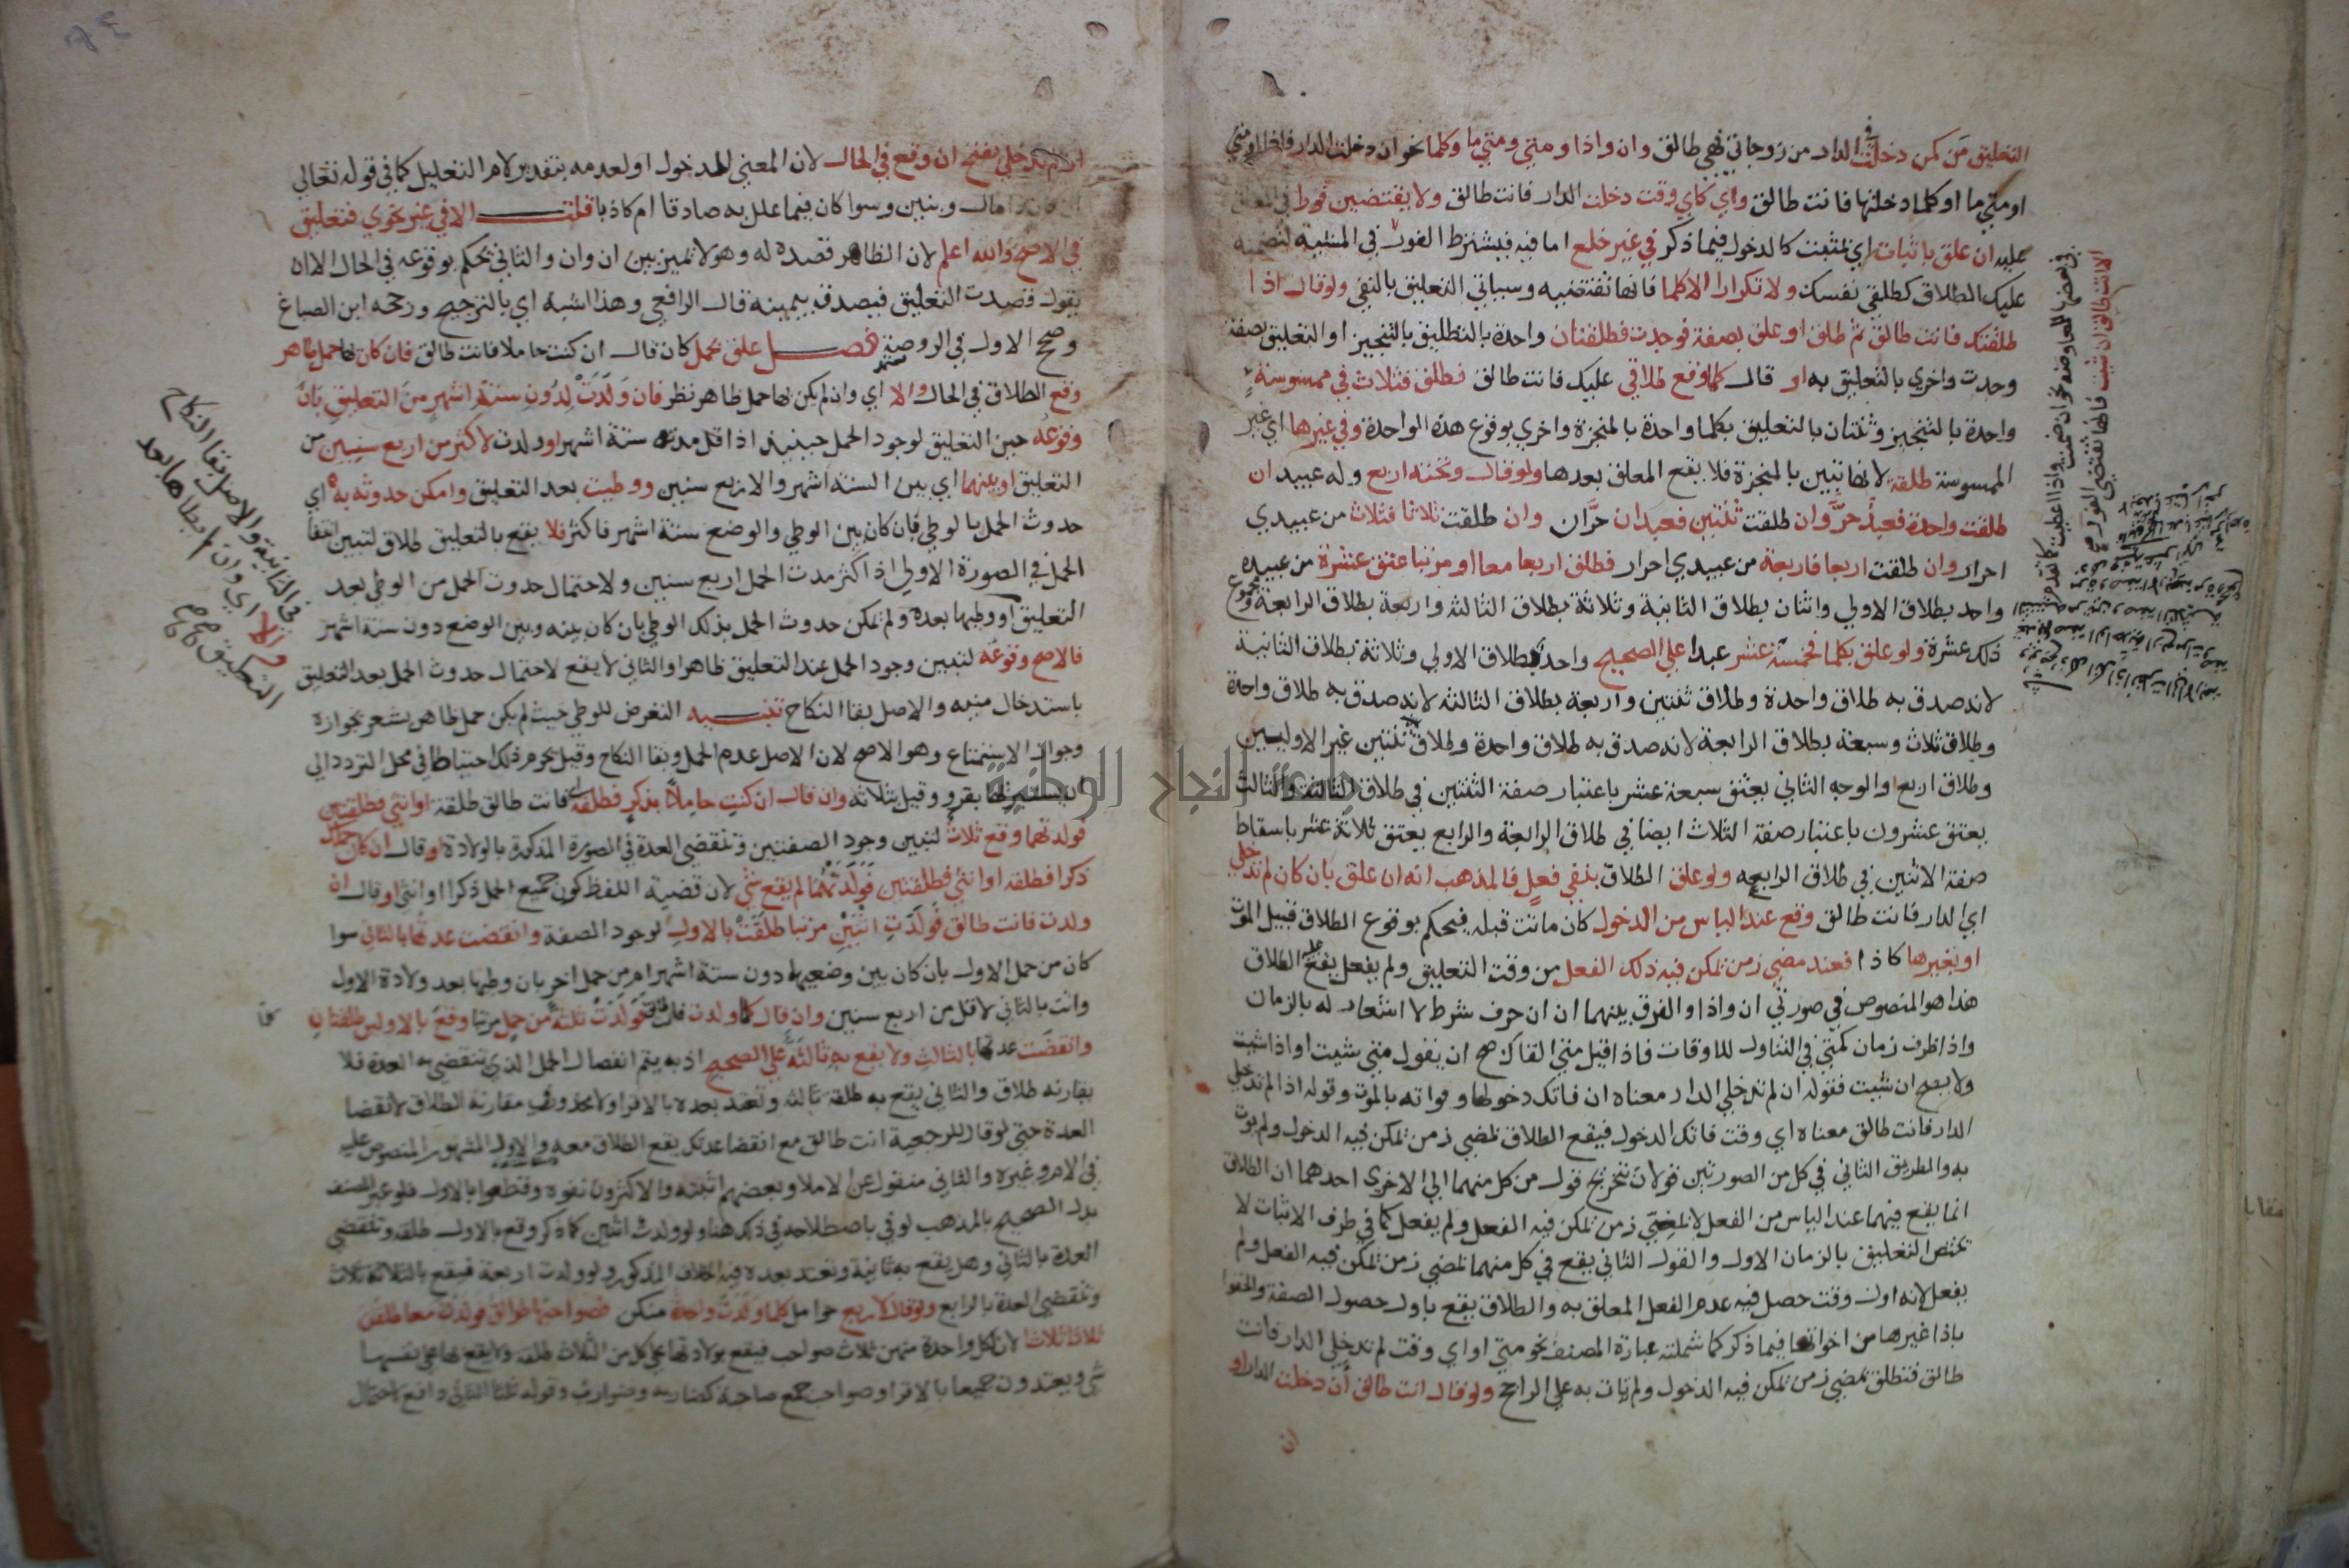 التعليق مَن كمن دخلت الدار من زوجاتي فهي طالق وان واذا ومتى ومتى ما وكلما نحو ان دخلت الدار او اذا او متى
او متى ما او كلما دخلتها فانت طالق واي كاي وقت دخلت الدار فانت طالق ولا يقتضين فورا في المعلق
عليه ان علق باثبات اي بمثبت كالدخول فيما ذكر في غير خلع اما فيه فيشترط الفور في المشيئة لتضمنه
عليك الطلاق كطلقي نفسك ولا تكرارا الا كلما فانها تقتضيه وسياتي التعليق بالنفي ولو قال اذا
طلقتك فانت طالق ثم طلق او علق بصفة فوجدت فطلقتان واحدة بالتطليق بالتنجيز او التعليق بصفة
وجدت واخرى بالتعليق به او قال كلما وقع طلاقي عليك فانت طالق فطلق فثلاث في ممسوسة
واحدة بالتنجيز وثنتان بالتعليق بكلما واحدة بالمنجزة واخرى بوقوع هذه الواحدة وفي غيرها اي غير
الممسوسة طلقة لانها تبين بالمنجزة فلا يقع المعلق بعدها ولو قال وتحته اربع وله عبيد ان
طلقت واحدة فعبد حرّ وان طلقت ثنتين فعبدان حرّان وان طلقت ثلاثا فثلاث من عبيدي
احرار وان طلقت اربعا فاربعة من عبيدي احرار فطلق اربعا معا او مرتبا عتق عشرة من عبيده
واحد بطلاق الاولى واثنان بطلاق الثانية وثلاثة بطلاق الثالثة واربعة بطلاق الرابعة ومجموع
ذلك عشرة ولو علق بكلما فخمسة عشر عبدا على الصحيح واحد بطلاق الاولى وثلاثة بطلاق الثانية
لانه صدق به طلاق واحدة وطلاق ثنتين واربعة بطلاق الثالثة لانه صدق به طلاق واحدة
وطلاق ثلاث وسبعة بطلاق الرابعة لانه صدق به طلاق واحدة وطلاق ثنتين غير الاوليين
وطلاق اربع والوجه الثاني يعتق سبعة عشر باعتبار صفة الثنتين في طلاق الثالثة والثالث
يعتق عشرون باعتبار صفة الثلاث ايضا في طلاق الرابعة والرابع يعتق ثلاثة عشر باسقاط
صفة الاثنين في طلاق الرابعة ولو علق الطلاق بنفي فعل فالمذهب انه ان علق بان كان لم تدخلي
اي الدار فانت طالق وقع عند الياس من الدخول كان ماتت قبله فيحكم بوقوع الطلاق قبيل الموت
او بغيرها كاذا فعند مضي زمن يمكن فيه ذلك الفعل من وقت التعليق ولم يفعل يقع الطلاق
هذا هو المنصوص في صورتي ان واذا والفرق بينهما ان ان حرف شرط لا اشعار له بالزمان
واذا ظرف زمان كمتى في التناول للاوقات فاذا قيل متى القاك صح ان يقول متى شيت او اذا شيت
ولا يصح ان شيت فقوله ان لم تدخلي الدار معناه ان فاتك دخولها وفواته بالموت وقوله اذا لم تدخلي
الدار فانت طالق معناه اي وقت فاتك الدخول فيقع الطلاق بمضي زمن يمكن فيه الدخول ولم يوت
به والطريق الثاني في كل من الصورتين قولان بتخريج قول من كل منهما الى الاخرى احدهما ان الطلاق
انما يقع فيهما عند الياس من الفعل لا بمضي زمن يمكن فيه الفعل ولم يفعل كما في طرف الاثبات لا
يختص التعليق بالزمان الاول والقول الثاني يقع في كل منهما بمضي زمن يمكن فيه الفعل ولم
يفعل لانه اول وقت حصل فيه عدم الفعل المعلق به والطلاق يقع باول حصول الصفة والحقوا
باذا غيرها من اخواتها فيما ذكر كما شملته عبارة المصنف نحو متى او اي وقت لم تدخلي الدار فانت
طالق فتطلق بمضي زمن يمكن فيه الدخول ولم يات به على الراجح ولو قال انت طالق أن دخلت الدار او
ان
ان لم تدخلي بفتح ان وقع في الحال لان المعنى للدخول او لعدمه بتقدير لام التعليل كما في قوله تعالى
ان كان ذا مال وبنين وسوا كان فيما علل به صادقا ام كاذبا قلت الا في غير نحوي فتعليق
في الاصح والله اعلم لان الظاهر قصده له وهو لا يميز بين ان وان والثاني يحكم بوقوعه في الحال الا ان
يقول قصدت التعليق فيصدق بيمينه قال الرافعي وهذا اشبه اي بالترجيح ورجحه ابن الصباغ
وصحح الاول في الروضة فصل علق بحمل كان قال ان كنت حاملا فانت طالق فان كان بها حمل ظاهر
وقع الطلاق في الحال والا اي وان لم يكن بها حمل ظاهر نظر فان ولدت لدون ستة اشهر من التعليق بان
وقوعه حين التعليق لوجود الحمل حينيذ اذ اقل مدته ستة اشهر او ولدت لاكثر من اربع سنين من
التعليق او بينهما اي بين الستة اشهر والاربع سنين ووطيت بعد التعليق وامكن حدوثه به اي
حدوث الحمل بالوطي فان كان بين الوطي والوضع ستة اشهر فاكثر فلا يقع بالتعليق طلاق لتبين انتفا
الحمل في الصورة الاولى اذ اكثر مدت الحمل اربع سنين ولاحتمال حدوث الحمل من الوطي بعد
التعليق او وطيها بعده ولم يمكن حدوث الحمل بذلك الوطي بان كان بينه وبين الوضع دون ستة اشهر
فالاصح وقوعه لتبين وجود الحمل عند التعليق ظاهرا والثاني لا يقع لاحتمال حدوث الحمل بعد التعليق
باستدخال منيه والاصل بقا النكاح تنبيه التعرض للوطي حيث لم يكن حمل ظاهر يشعر بجوازه
وجواز الاستمتاع وهو الاصح لان الاصل عدم الحمل وبقا النكاح وقيل يحرم ذلك احتياطا في محل التردد الى
ان يستبرئها بقرو وقيل بثلاثة وان قال ان كنت حاملا بذكر فطلقة فانت طالق طلقة او انثى فطلقتين
فولدتهما وقع ثلاث لتبين وجود الصفتين وتنقضي العدة في الصورة المذكورة بالولادة او قال ان كان حملك
ذكرا فطلقة او انثى فطلقتين فولدتهما لم يقع شي لان قضية اللفظ كون جميع الحمل ذكرا او انثى او قال ان
ولدت فانت طالق فولدت اثنين مرتبا طلقت بالاول لوجود الصفة وانقضت عدتها بالثاني سوا
كان من حمل الاول بان كان بين وضعيهما دون ستة اشهر ام من حمل اخر بان وطيها بعد ولادة الاول
واتت بالثاني لاقل من اربع سنين وان قال كلما ولدت فانت طالق فولدت ثلثة من حمل مرتبا وقع بالاولين طلقتان
وانقضت عدتها بالثالث ولا يقع به ثالثة على الصحيح اذ به يتم انفصال الحمل الذي تنقضي به العدة فلا
يقارنه طلاق والثاني يقع به طلقة ثالثة وتعتد بعده بالاقرا ولا محذور في مقارنة الطلاق لانقضا
العدة حتى لو قال للرجعية انت طالق مع انقضا عدتك يقع الطلاق معه والاول المشهور المنصوص عليه
في الام وغيره والثاني منقول عن الاملا وبعضهم اثبته والاكثرون نفوه وقطعوا بالاول فلو عبر المصنف
بدل الصحيح بالمذهب لوفى باصطلاحه في ذلك هنا ولو ولدت اثنين كما ذكر وقع بالاول طلقة وتنقضي
العدة بالثاني وهل يقع به ثانية وتعتد بعده فيه الخلاف المذكور ولو ولدت اربعة فيقع بالثلاثة ثلاث
وتنقضي العدة بالرابع ولو قال لاربع حوامل كلما ولدت واحدة منكن فصواحبها طوالق فولدن معا طلقن
ثلاثا ثلاثا لان لكل واحدة منهن ثلاث صواحب فيقع بولادتها على كل من الثلاث طلقة ولا يقع بها على نفسها
شي ويعتددن جميعا بالاقرا وصواحب جمع صاحبة كضاربة وضوارب وقوله ثلاثا الثاني دافع لاحتمال
في الثانية والاصل بقا النكاح
والا اي وان لم يطاها بعد
التعليق
جامعة النجاح الوطنية